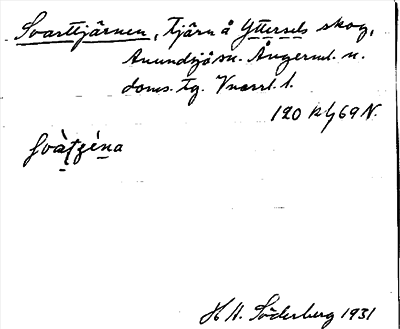 Svarttjärnen, tjärn å Yttersels skog,
Anundsjö sn. Ångerml. n.
doms. tg. Vnorrl. l.
120 Rb 69 N.
H. A. Söderberg 1931